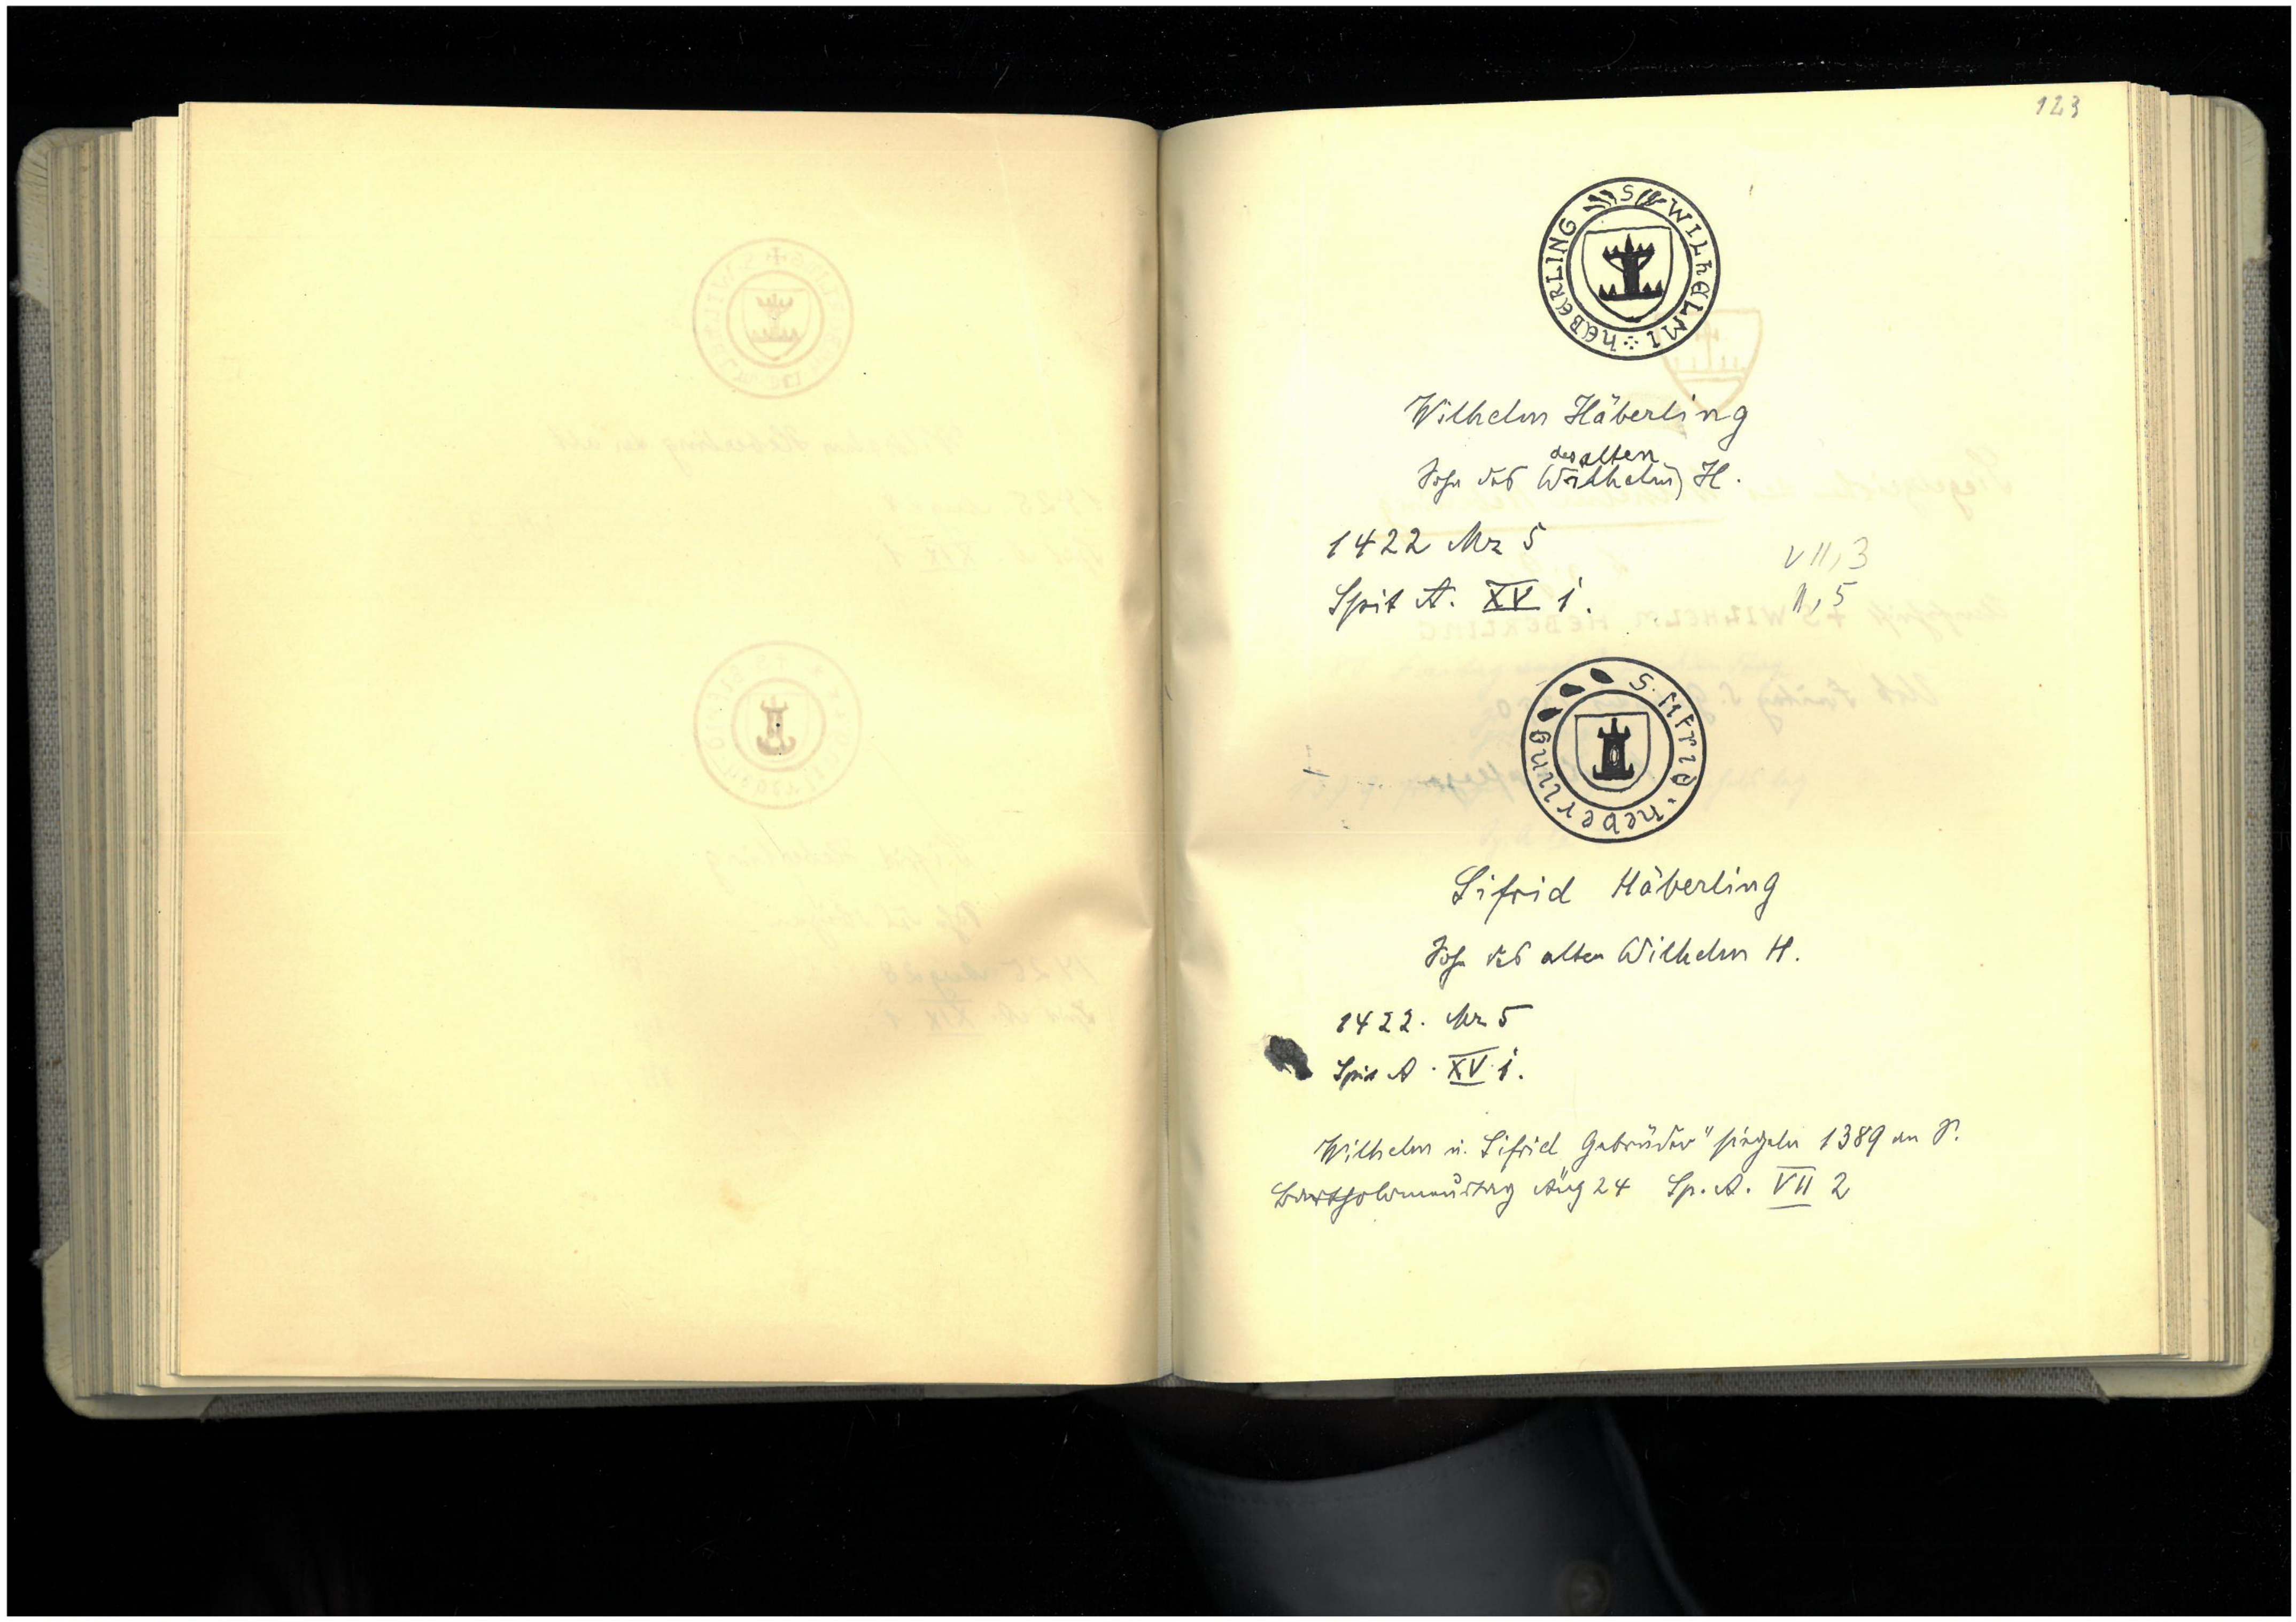 123
S WILhELMI hEBERLING
Wilhelm Häberling
des alten
Sohn des Wilhelm H.
1422 Mz 5
VII, 3
Spit A. XV 1.
11, 5
S. sifrid . heberling
Sifrid Häberling
Sohn des alten Wilhelm H.
1422. Mz 5
Spit A. XV 1.
Wilhelm u. Sifrid Gebrüder" siegeln 1389 an S.
Bartholomeustag Aug 24 Sp. A. VII 2